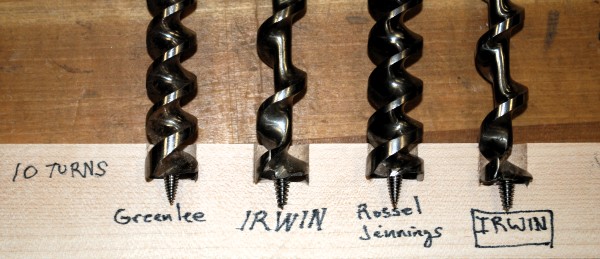 10 TURNS
Greenlee
IRWIN
Rossel
Jennings
IRWIN